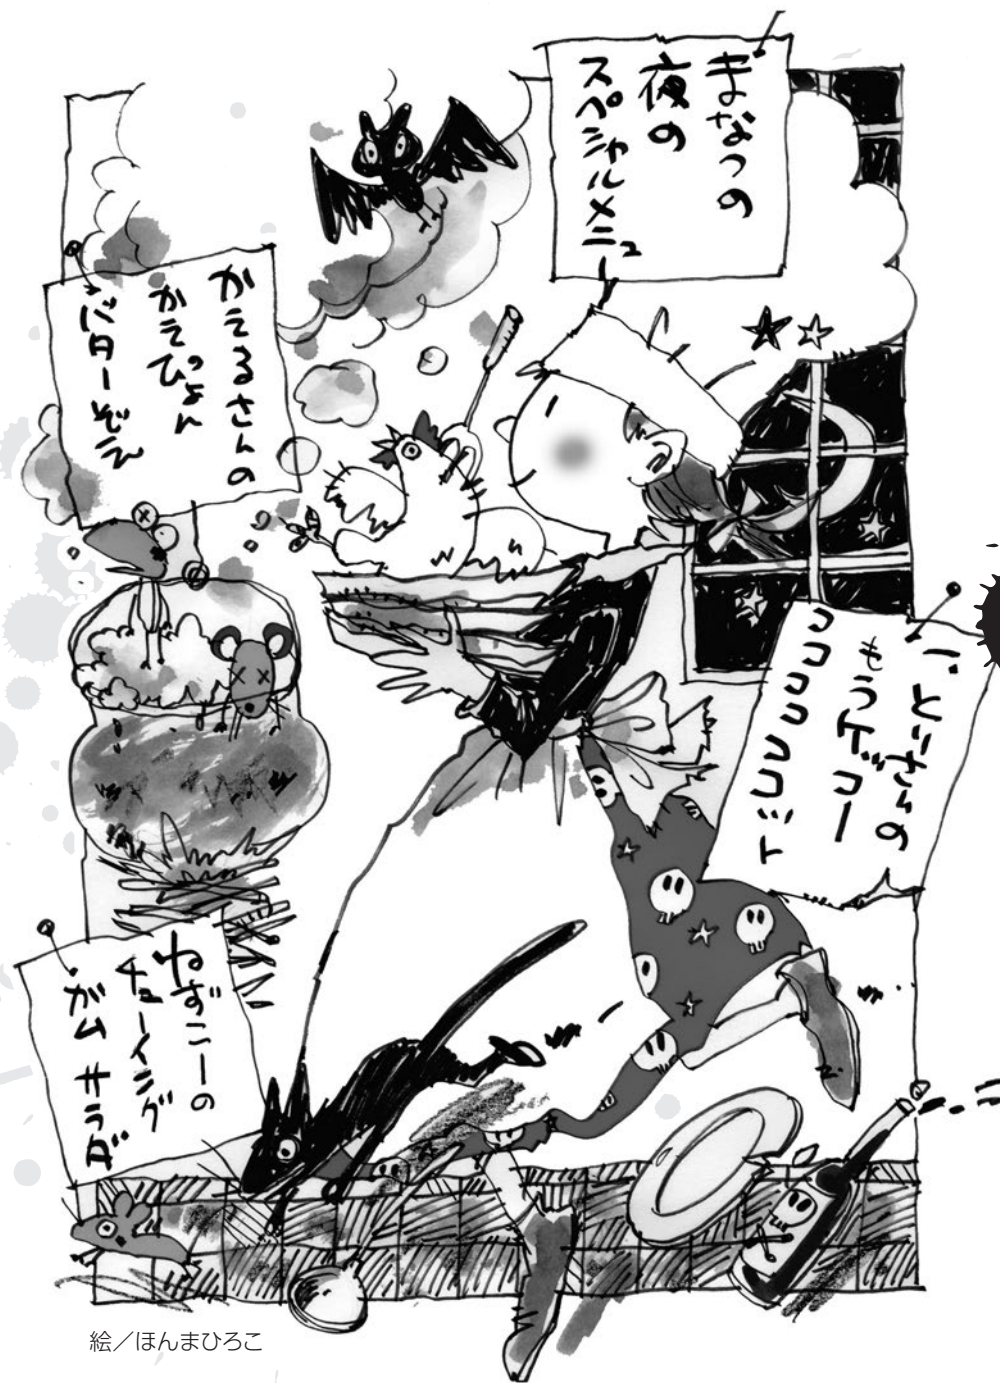 まなつの
夜の
スペシャルメニュー
かえるさんの
かえぴょん
バターぞえ
とりさんの
もうケッコー
ココココココココット
ねずこーの
チューイング
ガムサラダ
絵／ほんまひろこ